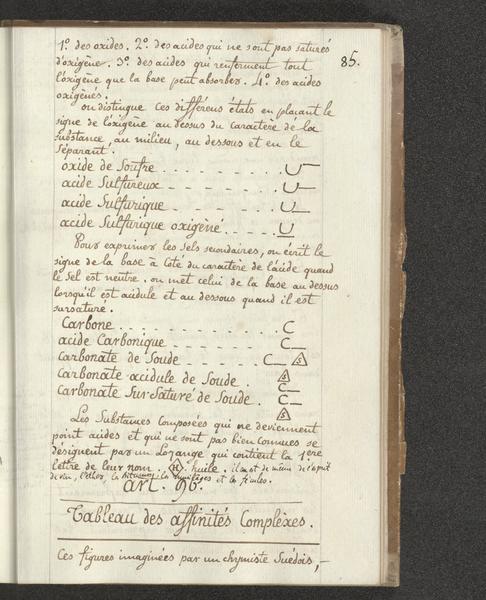 85.
1.º des oxides. 2.º des acides qui ne sont pas saturés
d'oxigène. 3.º des acides qui renferment tout
l'oxigène que la base peut absorber. 4.º des acides
oxigénés.
on distingue ces différens états en plaçant le
signe de l'oxigène au dessus du caractère de la
substance au milieu, au dessous et en le
séparant.
oxide de Soufre
acide Sulfureux
acide Sulfurique
acide Sulfurique oxigéné
Pour exprimer les sels secondaires, on écrit le
signe de la base à côté du caractère de l'acide quand
le sel est neutre. on met celui de la base au dessus
lorsqu'il est acidule et au dessous quand il est
sursaturé.
Carbone C
acide Carbonique C
Carbonate de Soude C S
Carbonate acidule de Soude. S C
Carbonate Sur-Saturé de Soude. C S
Les Substances Composées qui ne deviennent
point acides et qui ne sont pas bien connues se
désignent par un Lozange qui contient la 1ère
lettre de leur nom. H. huile. il en est de même de l'esprit
de vin, l'ether, la bitumes, la et les fécules.
art. 96.
Tableau des affinités Complèxes.
Ces figures imaginées par un chymiste Suédois,